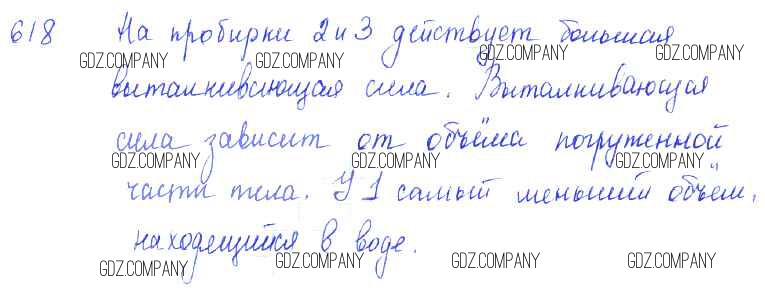 618 На пробирки 2 и 3 действует большая
GDZ.COMPANY GDZ.COMPANY GDZ.COMPANY GDZ.COMPANY
выталкивающая сила. Выталкивающая
сила зависит от объёма погруженной
GDZ.COMPANY GDZ.COMPANY GDZ.COMPANY GDZ.COMPANY
части тела. У 1 самый меньший объём,
находящийся в воде.
GDZ.COMPANY GDZ.COMPANY GDZ.COMPANY GDZ.COMPANY